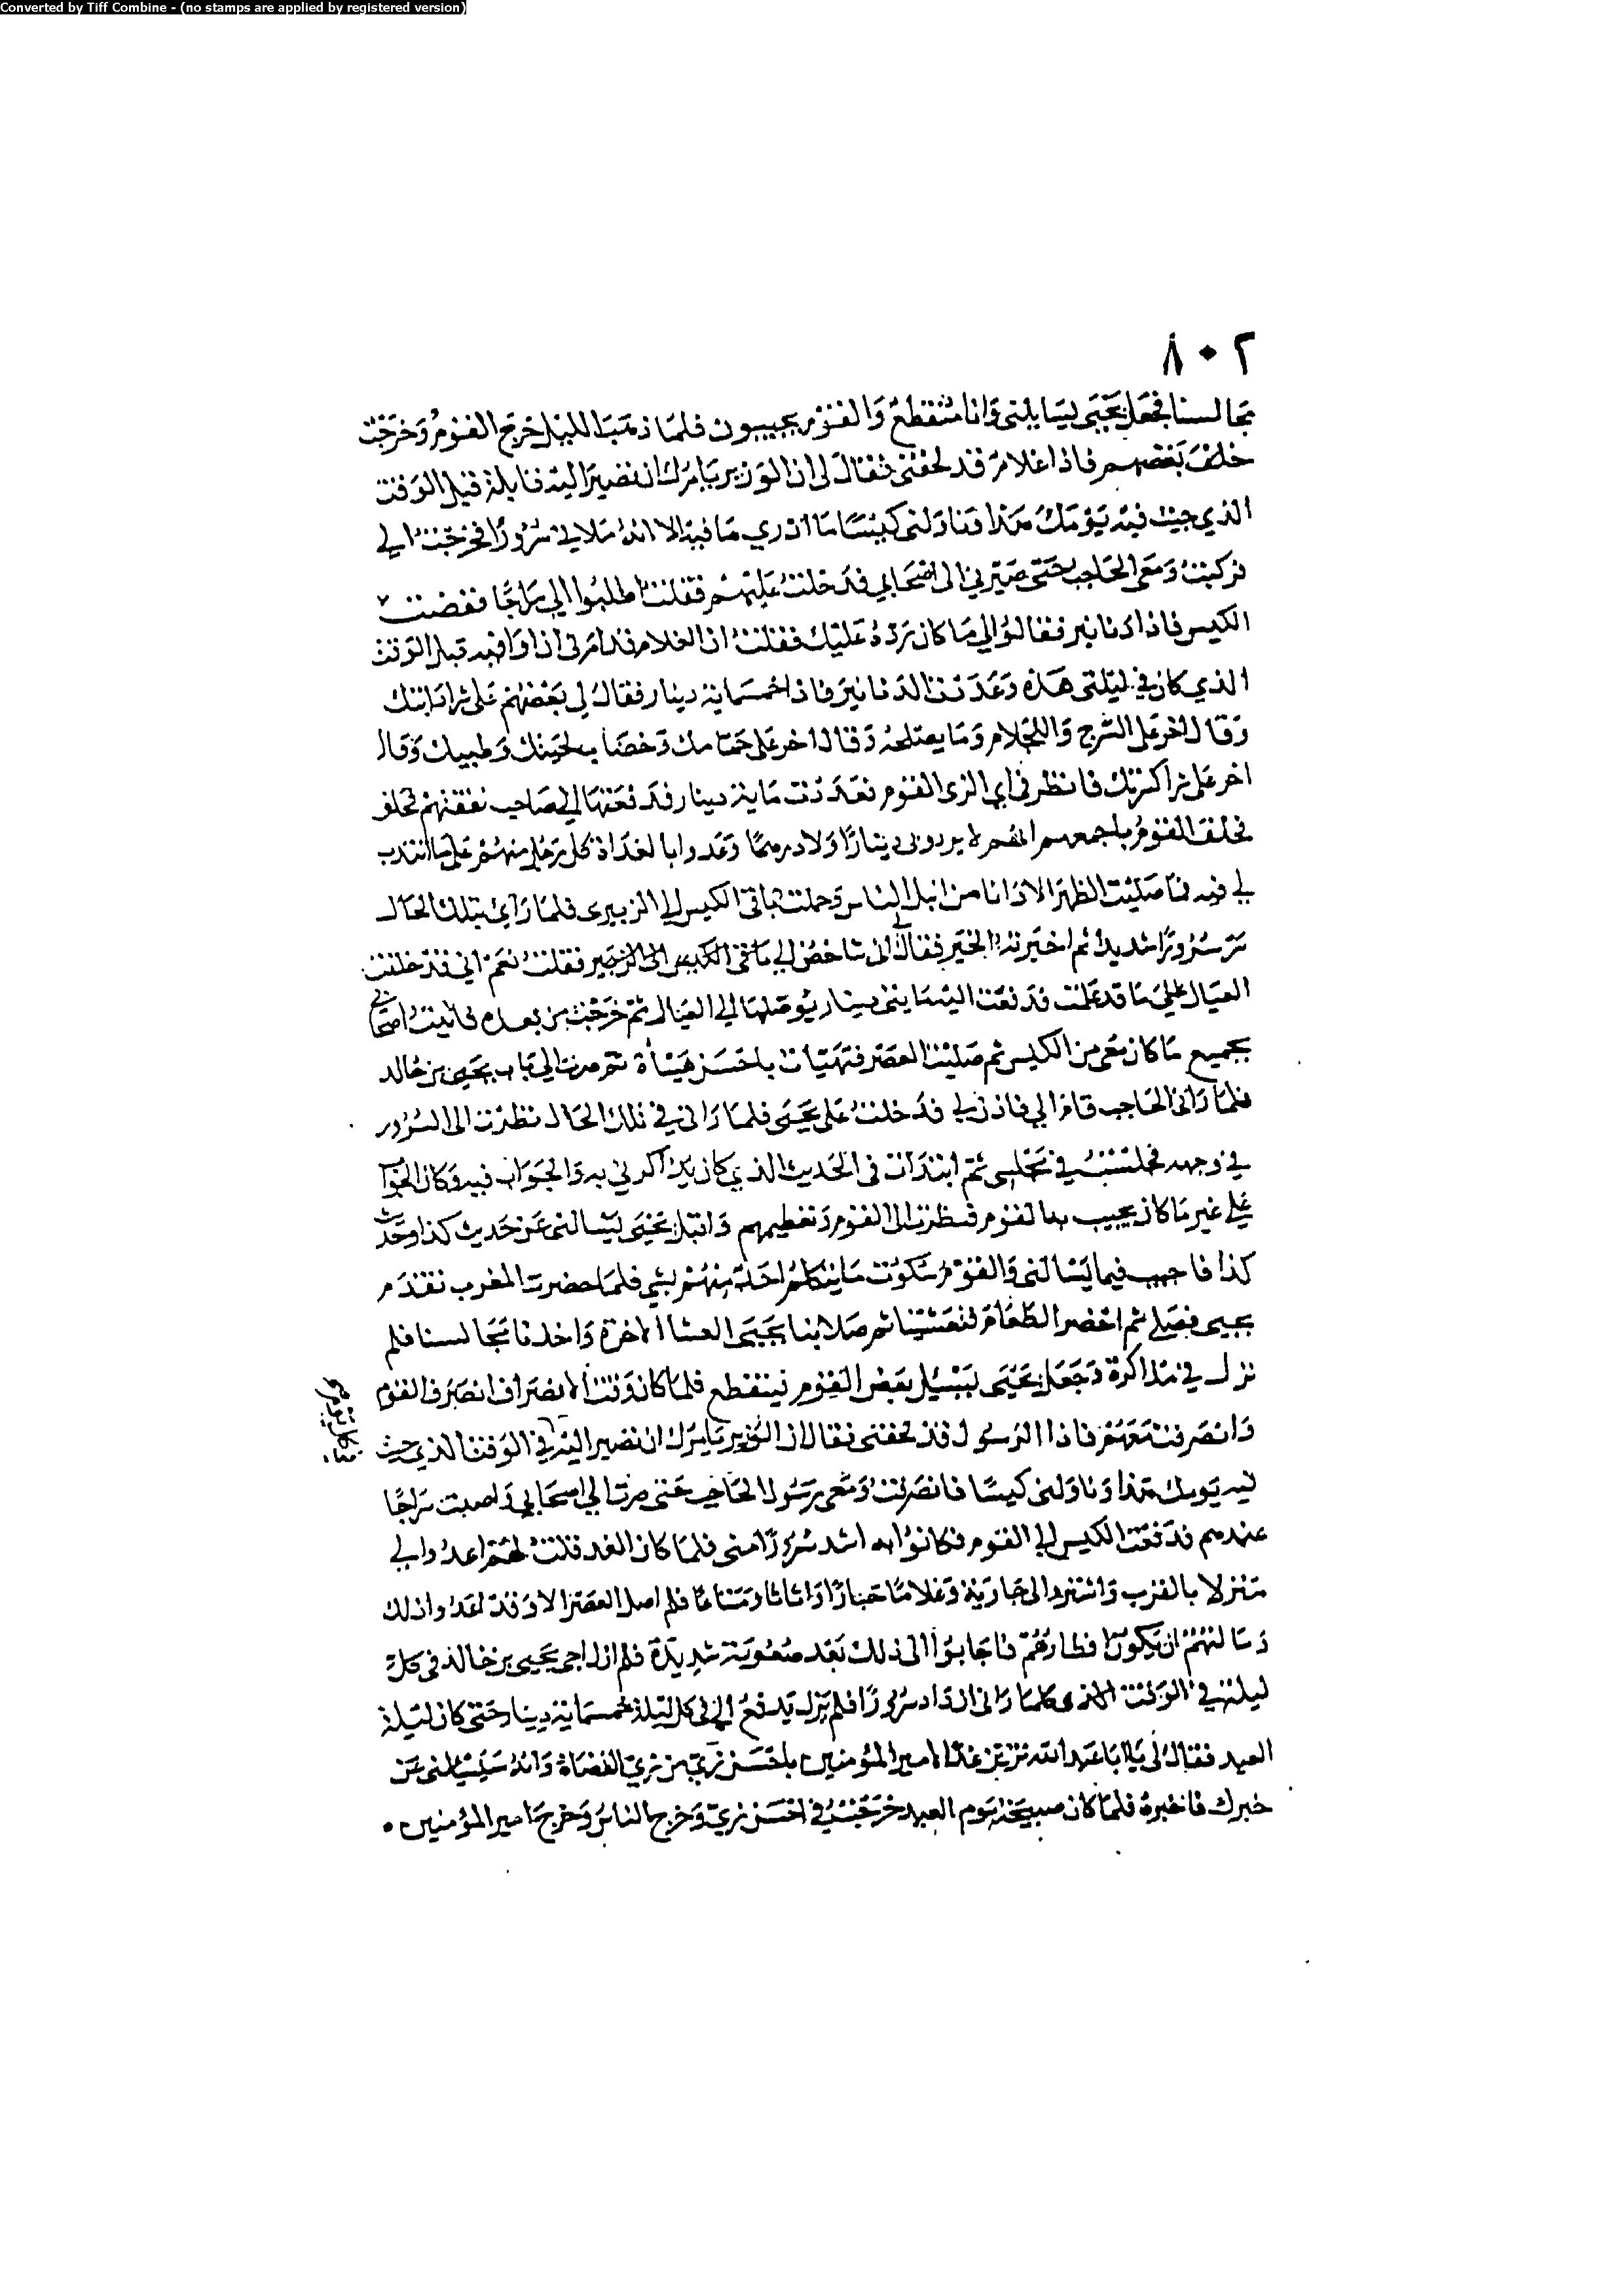 Converted by Tiff Combine - (no stamps are applied by registered version)
٨٠٢
مجالسنا فجعل يحيى يسايلنى وانا منقطع والقوم يجيبون فلما ذهب الليل خرج القوم وخرجت
خلف بعضهم فاذا غلام قد لحقنى فقال لى ان الوزير يامرك ان تصير اليه قابلة قبل الوقت
الذي جيت فيه يومك هذا فناولنى كيسا ما ادري ما فيه الا انه ملاني سرورا فخرجت الي
فركبت ومعى الحاجب حتى صيرني الى اصحابي فدخلت عليهم فقلت اطلبوا الي سراجا ففضضت
الكيس فاذا دنانير فقالوا لي ما كان رده عليك فقلت ان الغلام قد امرنى ان اوافيه قبل الوقت
الذي كان في ليلتى هذه وعددت الدنانير فاذا خمسماية دينار فقال لي بعضهم على شرا دابتك
وقال اخر على السرج واللجام وما يصلحه وقال اخر على حمامك وخضاب لحيتك وطيبك وقال
اخر على شرا كسوتك فانظر فى اي الزى القوم فعددت ماية دينار فدفعتها الي صاحب نفقتهم فحلف
فحلف القوم باجمعهم انهم لا يردونى دينارا ولا درهما وغدوا بالغداة كل رجل منهم على ما انتدب
لي فيه فما صليت الظهر الا وانا من انبل الناس وحملت باقى الكيس الي الزبيرى فلما راني بتلك الحال
سر سرورا شديدا ثم اخبرته الخبر فقال لى انى شاخص الي فقلت نعم انى قد خلفت
العيال على ما قد علمت فدفعت اليه مايتى دينار يوصلها الي العيال ثم خرجت من بعده فاتيت اصحابي
بجميع ما كان معى من الكيس ثم صليت العصر فتهيات باحسن هيئاة ثم صرت الي باب يحيى بن خالد
فلما رانى الحاجب قام الي فاذن لي فدخلت على يحيى فلما رانى في تلك الحال نظرت الى السرور
في وجهه فجلست في مجلسى ثم ابتدات فى الحديث الذي كان يذاكرني به والجواب فيه وكان الجواب
علي غير ما كان يجيب به القوم فنظرت الى القوم وتقطيبهم واقبل يحيى يسالنى عن حديث كذا وحديث
كذا فاجيب فيما يسالنى والقوم سكوت ما يتكلم احد منهم بشي فلما حضرت المغرب تقدم
يحيى فصلي ثم احضر الطعام فتعشينا ثم صلا بنا يحيى العشا الاخرة واخذنا مجالسنا فلم
نزل في مذاكرة وجعل يحيى يسيل بعض القوم فينقطع فلما كان وقت الانصراف انصرف القوم
وانصرفت معهم فاذا الرسول قد لحقنى فقال ان الوزير يامرك ان تصير اليه في الوقت الذي جيت
فيه يومك هذا وناولنى كيسا فانصرفت ومعى رسول الحاجب حتى صرت الي اصحابي واصبت سراجا
عندهم فدفعت الكيس الي القوم فكانوا به اشد سرورا منى فلما كان الغد قلت لهم اعدوا لي
منزلا بالقرب واشتروا لى جارية وغلاما خبازا واثاثا ومتاعا فلم اصل العصر الا وقد اعدوا ذلك
وسالتهم ان يكون افطارهم فاجابوا الى ذلك بعد صعوبة شديدة فلم ازل اجى يحيى بن خالد فى كل
ليلة في الوقت الاذى كلما رانى ازداد سرورا فلم يزل يدفع الي فى كل ليلة خمسماية دينار حتى كان ليلة
العيد فقال لى يا ابا عبد الله تزين غدا لامير المؤمنين باحسن زي من زي القضاة وانه سيسالنى عن
خبرك فاخبره فلما كان صبيحة يوم العيد خرجت في احسن زي وخرج الناس وخرج امير المؤمنين ٠